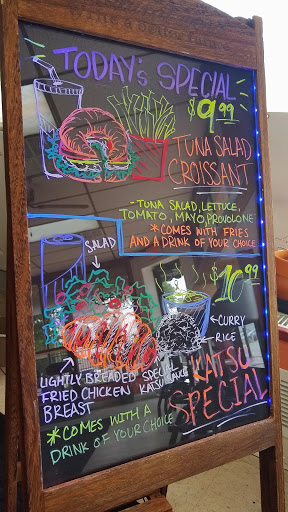 TODAY'S SPECIAL
$9.99
TUNA SALAD
CROISSANT
- TUNA SALAD, LETTUCE,
TOMATO, MAYO, PROVOLONE
*COMES WITH FRIES
AND A DRINK OF YOUR CHOICE
SALAD
$10.99
CURRY
RICE
LIGHTLY BREADED
FRIED CHICKEN
BREAST
SPECIAL
KATSU
KATSU
SPECIAL
*COMES WITH A
DRINK OF YOUR CHOICE